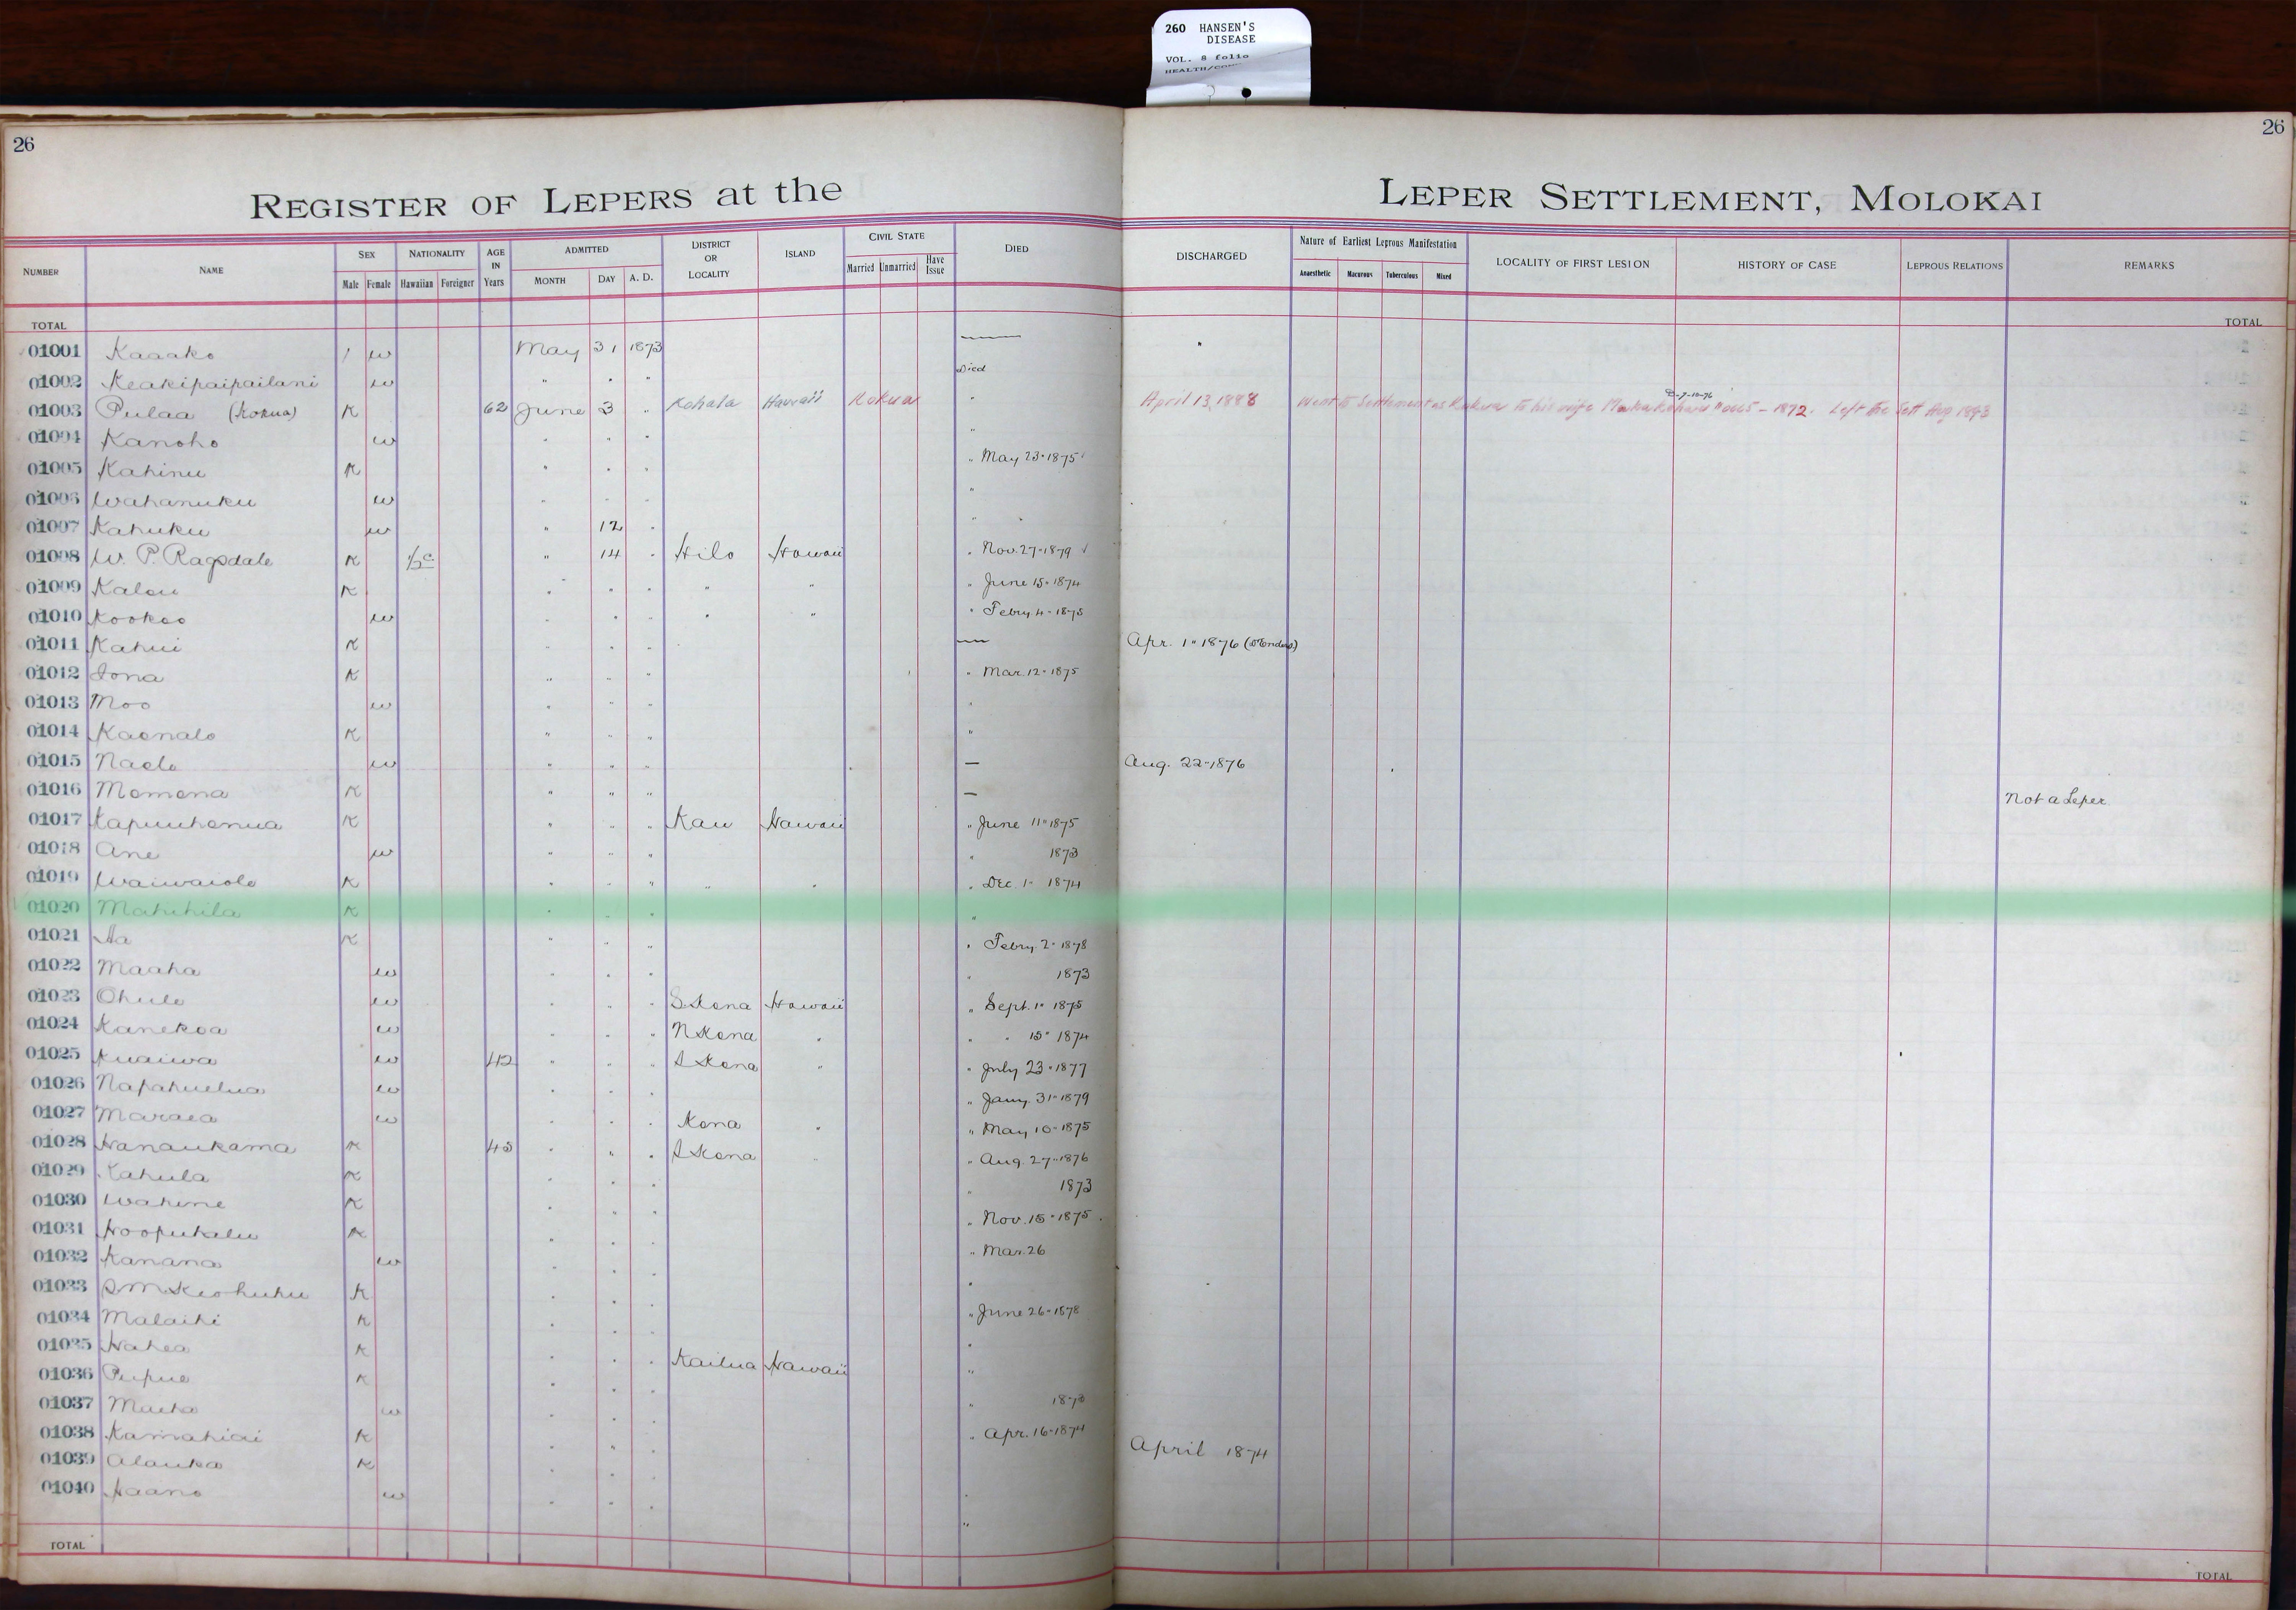 260 HANSEN'S
DISEASE
VOL. 8 folio
26
26
REGISTER OF LEPERS at the LEPER SETTLEMENT, MOLOKAI
NUMBER NAME SEX NATIONALITY AGE IN Years ADMITTED DISTRICT OR LOCALITY ISLAND CIVIL STATE DIED DISCHARGED Nature of Earliest Leprous Manifestation LOCALITY OF FIRST LESION HISTORY OF CASE LEPROUS RELATIONS REMARKS
Male Female Hawaiian Foreigner MONTH DAY A. D. Married Unmarried Have Issue Anaesthetic Macurous Tuberculous Mixed
TOTAL TOTAL
01001 Kaaako / w May 31 1873 — "
01002 Keakipaipailani w " " " Died
01003 Pulaa (Kokua) K 62 June 3 " Kohala Hawaii Kokua " April 13, 1888 Went to Settlement as Kokua to his wife 1872. Left the Sett Aug 1893
01004 Kanoho w " " " "
01005 Kahinu K " " " " May 23 · 1875
01006 Wahanuku w " " " "
01007 Kahuku w " 12 " "
01008 W. P. Ragsdale K ½ c " 14 " Hilo Hawaii " Nov. 27 · 1879
01009 Kalou K " " " " " " June 15 · 1874
01010 Kookoo w " " " " " " Febry. 4 - 1875
01011 Kahui K " " " — Apr. 1 " 1876
01012 Iona K " " " " Mar. 12 · 1875
01013 Moo w " " " "
01014 Kaonalo K " " " "
01015 Naelo w " " " — Aug. 22 - 1876
01016 Momona K " " " — Not a Leper
01017 Kapuuhonua K " " " Kau Hawaii " June 11 " 1875
01018 Ane w " " " " 1873
01019 Waiwaiole K " " " " " " Dec. 1 - 1874
01020 Mahihila K " " " "
01021 Aa K " " " " Febry. 2 · 1878
01022 Maaha w " " " " 1873
01023 Ohule w " " " S. Kona Hawaii " Sept. 1 · 1875
01024 Kanekoa w " " " N Kona " " " 15 " 1874
01025 Kuaiwa w 42 " " " S Kona " " July 23 · 1877
01026 Napahuelua w " " " " Jany. 31 · 1879
01027 Maraea w " " " Kona " " May 10 - 1875
01028 Hanaukama K 45 " " " S Kona " " Aug. 27 · 1876
01029 Kahula K " " " " 1873
01030 Wahine K " " " " Nov. 15 · 1875
01031 Hoopukalu K " " " " Mar. 26
01032 Kanana w " " " "
01033 S M Keohuhu K " " " " June 26 - 1878
01034 Malaihi K " " " "
01035 Hahea K " " " Kailua Hawaii "
01036 Pupue K " " "
01037 Maeha w " " " " 1873
01038 Kamahiai K " " " " Apr. 16 · 1874
01039 Alauka K " " " April 1874
01040 Haano w " " " "
TOTAL TOTAL